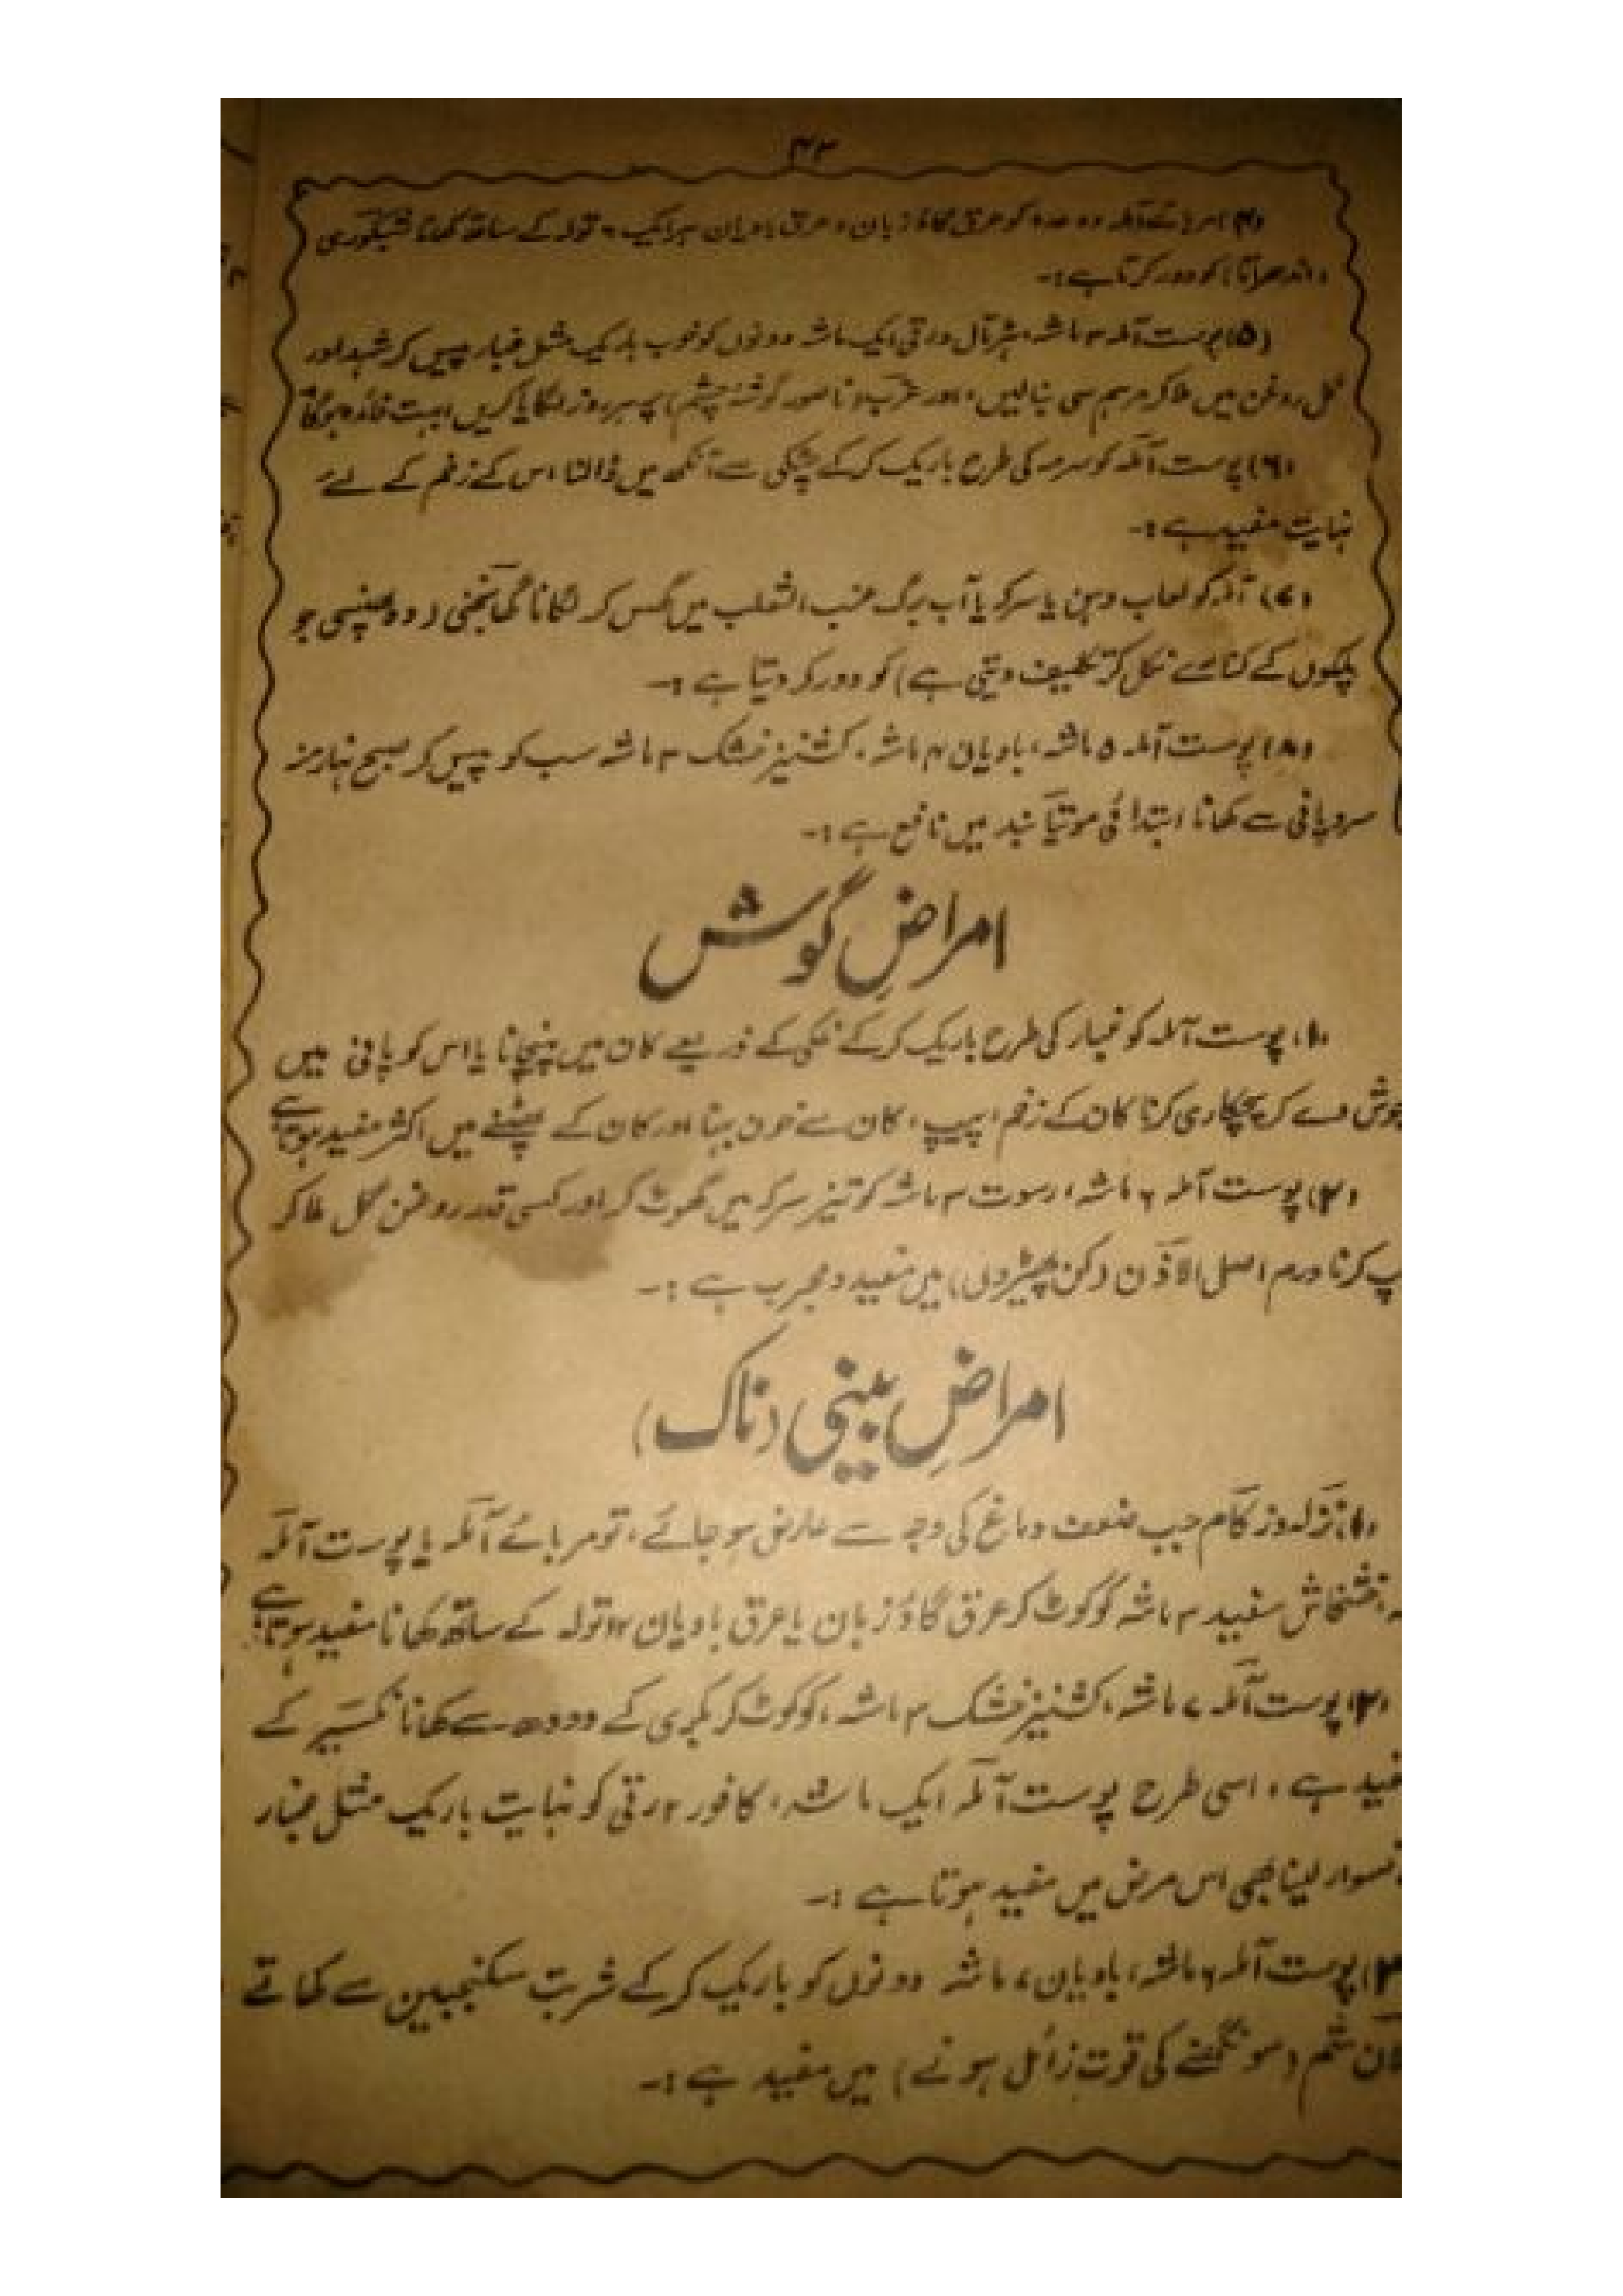 ۴۳
(۴) مربائے آملہ دو عدد کو عرق گاؤ زبان و عرق بادیان ہر ایک ۶ تولہ کے ساتھ کھانا شبکوری
(اندھراتا) کو دور کرتا ہے :-
(۵) پوست آملہ ۳ ماشہ، ہڑتال ورقی ایک ماشہ دونوں کو خوب باریک مثل غبار پیس کر شہد اور
گل روغن میں ملا کر مرہم سی بنا لیں، اور غرب (ناصور گوشۂ چشم) پہ ہر روز لگایا کریں، بہت فائدہ ہوگا
(۶) پوست آملہ کو سرمہ کی طرح باریک کر کے چٹکی سے آنکھ میں ڈالنا، اس کے زخم کے لئے
نہایت مفید ہے :-
(۷) آملہ کو لعاب دہن یا سرکہ یا آب برگ عنب الثعلب میں گھس کر لگانا گہانجنی (وہ پھنسی جو
پلکوں کے کنارے نکل کر تکلیف دیتی ہے) کو دور کر دیتا ہے :-
(۸) پوست آملہ ۵ ماشہ، بادیان ۴ ماشہ، کشنیز خشک ۳ ماشہ سب کو پیس کر صبح نہار منہ
سرد پانی سے کھانا ابتدائی موتیا بند میں نافع ہے :-
امراضِ گوش
(۱) پوست آملہ کو غبار کی طرح باریک کر کے نلکی کے ذریعے کان میں پہنچانا یا اس کو پانی میں
جوش دے کر پچکاری کرنا کان کے زخم، پیپ، کان سے خون بہنا اور کان کے پھٹنے میں اکثر مفید ہوتا ہے
(۲) پوست آملہ ۶ ماشہ، رسوت ۳ ماشہ کو تیز سرکہ میں گھوٹ کر اور کسی قدر روغن گل ملا کر
پ کرنا ورم اصل الاذن (کن پیڑوں) میں مفید و مجرب ہے :-
امراضِ بینی (ناک)
(۱) نزلہ و زکام جب ضعف دماغ کی وجہ سے عارض ہو جائے، تو مربائے آملہ یا پوست آملہ
خشخاش سفید ۳ ماشہ کو کوٹ کر عرق گاؤ زبان یا عرق بادیان ۱۲ تولہ کے ساتھ کھانا مفید ہوتا ہے
(۲) پوست آملہ ۷ ماشہ، کشنیز خشک ۳ ماشہ، کو کوٹ کر بکری کے دودھ سے کھانا نکسیر کے
مفید ہے، اسی طرح پوست آملہ ایک ماشہ، کافور ۲ رتی کو نہایت باریک مثل غبار
نسوار لینا بھی اس مرض میں مفید ہوتا ہے :-
(۳) پوست آملہ ۶ ماشہ، بادیان ۷ ماشہ دونوں کو باریک کر کے شربت سکنجبین سے کھاتے
لان شم (سونگھنے کی قوت زائل ہونے) میں مفید ہے :-